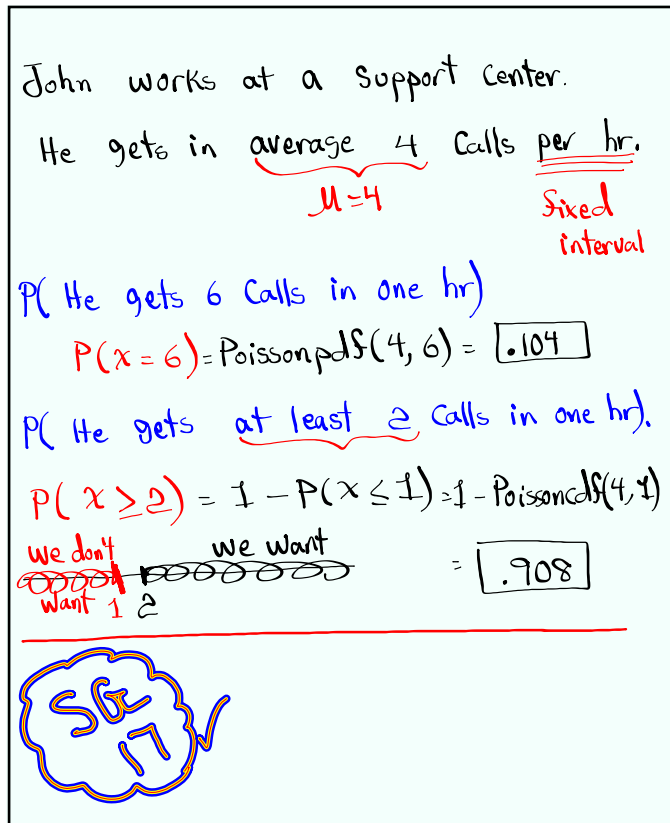 John works at a support center.
He gets in average 4 calls per hr.
μ=4
fixed
interval
P( He gets 6 calls in one hr)
P(x = 6) = Poissonpdf(4, 6) = .104
P( He gets at least 2 calls in one hr).
P( x ≥ 2) = 1 - P(x ≤ 1) = 1 - Poissoncdf(4, 1)
we don't
we want
= .908
want 1 2
SG
17